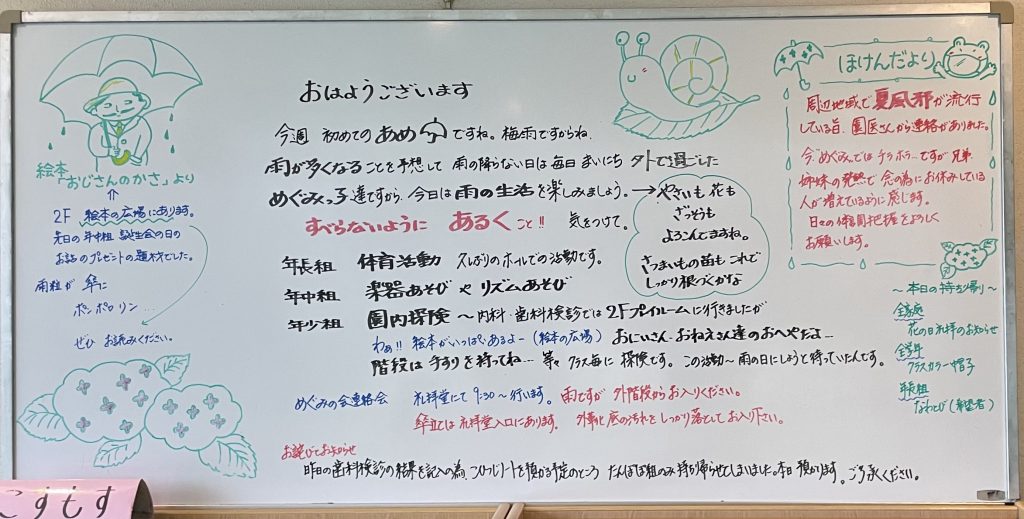 おはようございます
今週 初めてのあめですね。梅雨ですからね、
雨が多くなることを予想して 雨の降らない日は毎日 まいにち 外で過ごした
めぐみっ子達ですから、今日は雨の生活を楽しみましょう。→
すべらないように あるくこと!! 気をつけて。
やさいも花も
ざっそうも
よろこんでますね。
さつまいもの苗もこれで
しっかり根づくかな
年長組 体育活動 久しぶりのホールでの活動です。
年中組 楽器あそびやリズムあそび
年少組 園内探険 〜内科・歯科検診では2Fプレイルームに行きましたが
わぁ!! 絵本がいっぱいあるよー(絵本の広場) おにいさん・おねえさん達のおへやだよ…
階段は手すりを持ってね… 等々 クラス毎に 探険です。この活動〜雨の日にしようと待っていたんです。
めぐみの会連絡会 礼拝堂にて 9:30〜行います。雨ですが 外階段からお入りください。
傘立ては礼拝堂入口にあります。 外靴底の汚れをしっかり落としてお入り下さい。
お詫びとお知らせ
昨日の歯科検診の結果を記入の為、こひつじノートを預かる予定のところ たんぽぽ組のみ持ち帰らせてしまいました。本日預かります。ご了承ください。
絵本
「おじさんのかさ」より
↑
2F 絵本の広場にあります。
先日の年中組 誕生会の日の
お話のプレゼントの題材でした。
雨粒が 傘に
ポンポロリン…
ぜひ お読みください。
ほけんだより
周辺地域で夏風邪が流行
している旨、園医さんから連絡がありました。
今めぐみではチラホラ…ですが兄弟
姉妹の発熱で念の為にお休みしている
人が増えているように感じます。
日々の体調把握をよろしく
お願いします。
〜本日の持ち帰り〜
全家庭
花の日礼拝のお知らせ
全学年
クラスカラー帽子
年長組
なわとび(希望者)
こすもす